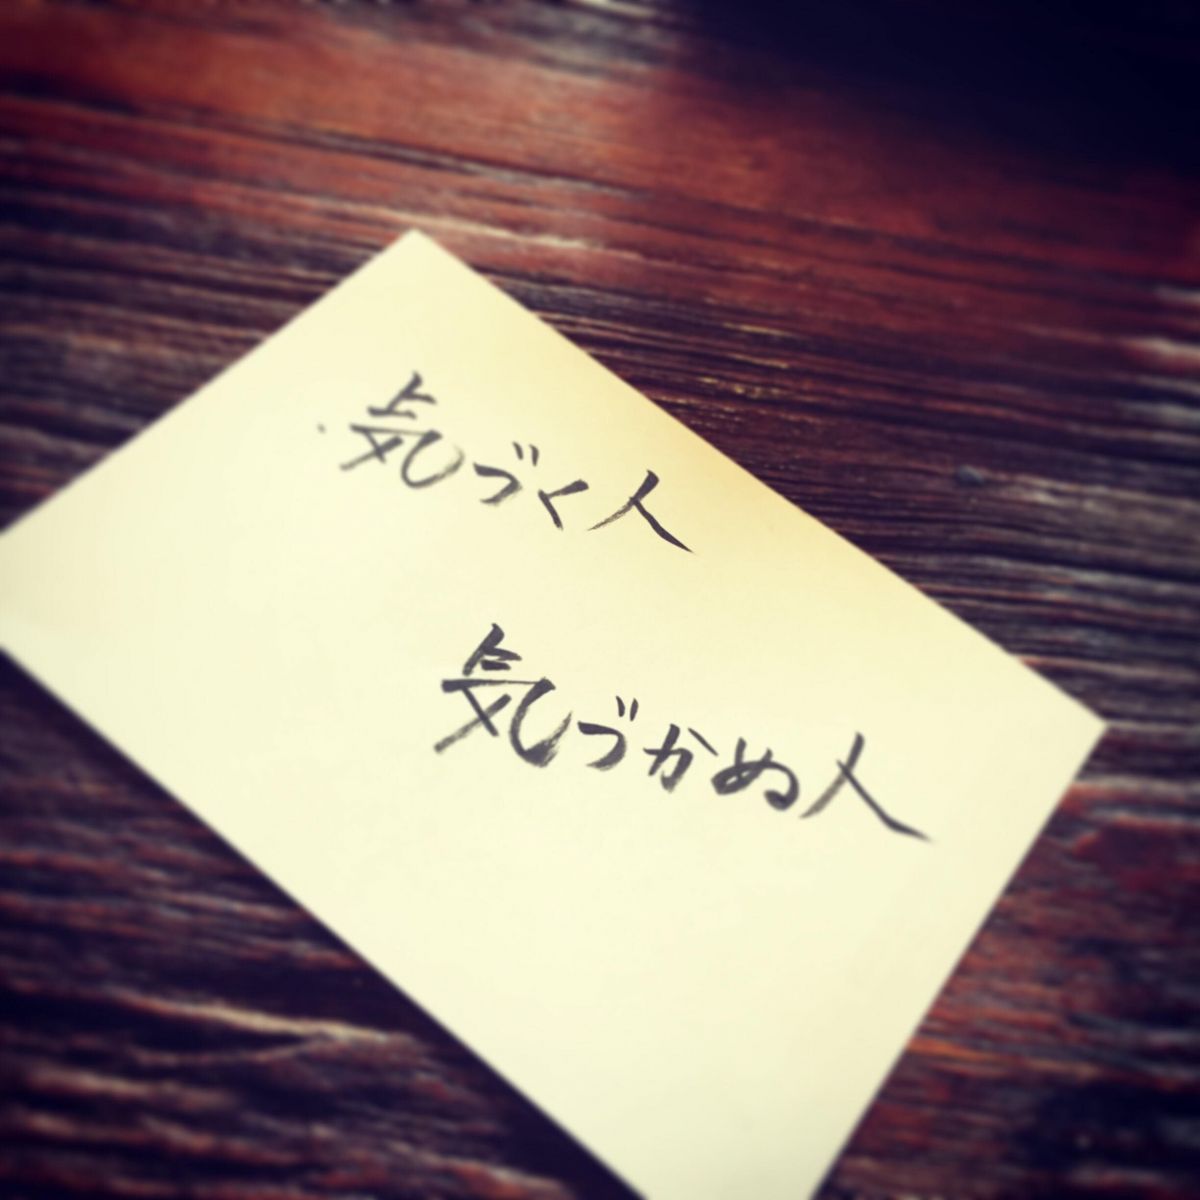 気づく人
気づかぬ人